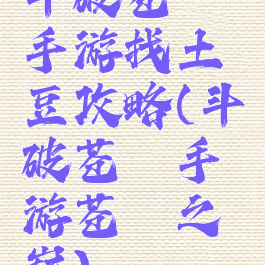 斗破苍
手游找土
豆攻略(斗
破苍 手
游苍 之